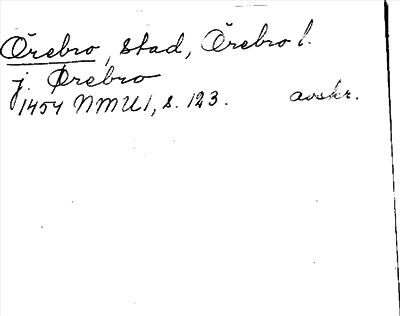 Örebro, stad, Örebro l.
j. Ørebro
1454 NMU 1, s. 123. avskr.